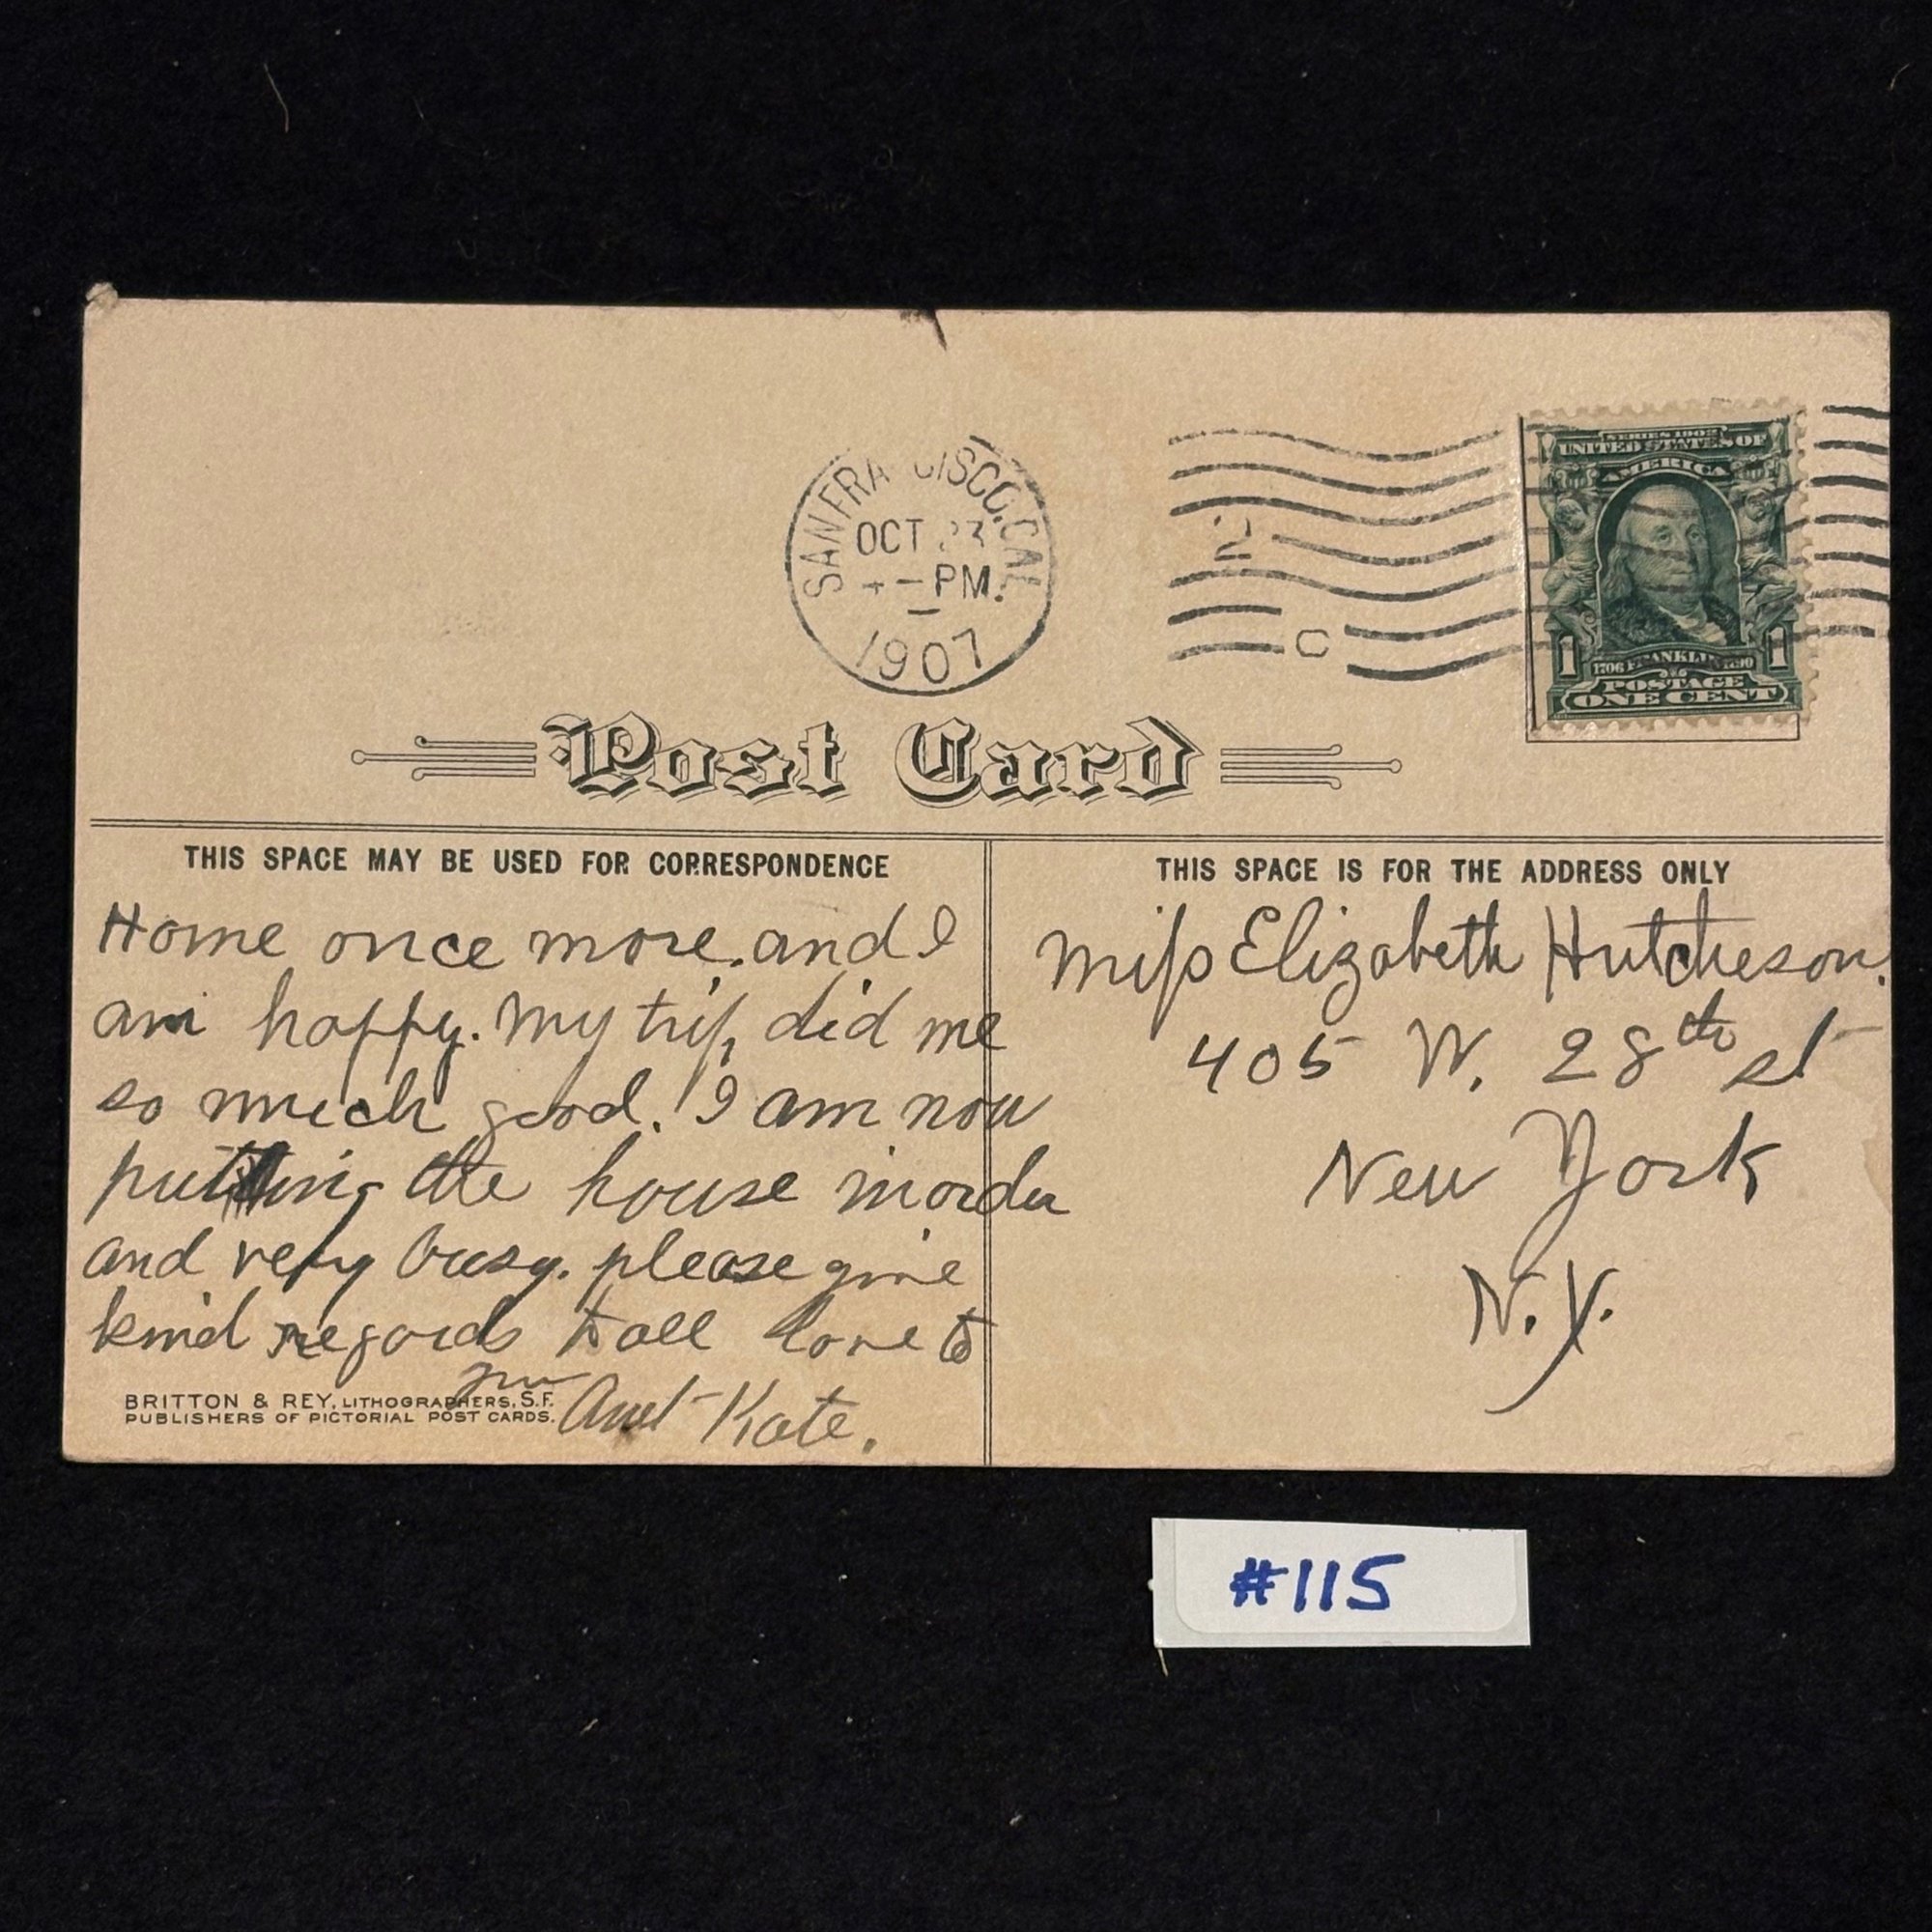 SAN FRA CISCO. CAL
OCT 23
- PM.
1907
2
C
SERIES 1902
UNITED STATES OF
AMERICA
1 1
1706 FRANKLIN 1790
POSTAGE
ONE CENT
Post Card
THIS SPACE MAY BE USED FOR CORRESPONDENCE
Home once more. and I
am happy. My trip did me
so much good. I am now
putting the house in order
and very busy. please give
kind regards to all love to
you
Aunt Kate.
BRITTON & REY, LITHOGRAPHERS, S.F.
PUBLISHERS OF PICTORIAL POST CARDS.
THIS SPACE IS FOR THE ADDRESS ONLY
Miss Elizabeth Hutcheson.
405 W. 28th st
New York
N.Y.
#115